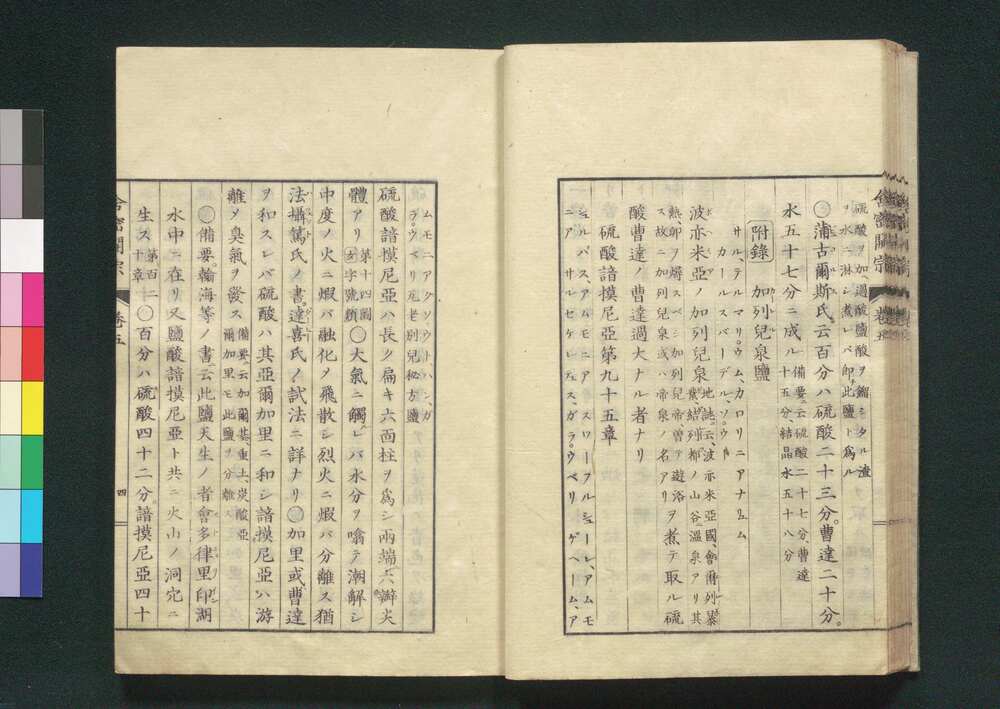 硫酸ヲ加過酸鹽酸ヲ餾シタル渣
ヲ水ニ淋シ煮レバ即此鹽ト爲ル
◯蒲古爾斯氏云百分ハ硫酸二十三分。曹達二十分。
水五十七分ニ成ル備要。云硫酸二十七分、曹達
十五分結晶水五十八分
附錄 加列兒泉鹽
サル、テルマリウム、カロリニアナリュム
カールスバーデルソウ
波亦米亞ノ加列兒泉地誌。云、波亦米亞國、會爾列暴
ノ山谷溫泉アリ其
熱、卵ヲ燖スベシ加列兒帝曾テ遊浴
ス故ニ加列兒泉或ハ帝泉ノ名アリヲ煮テ取ル硫
酸曹達ノ曹達過大ナル者ナリ
硫酸諳摸尼亞第九十五章
シュルパス、アムモニアスワーフルシューレ、アムモ
ニア サルセケレテュス、ガラウベリ ゲヘーム、ア
ムモニアクソウトハン、ガ
ラウベリ
硫酸諳摸尼亞ハ長ク扁キ六面柱ヲ爲シ兩端六瓣尖
體アリ第十四圖
◯大氣ニ觸レバ水分ヲ噏テ潮解シ
中度ノ火ニ煆バ融化ヲ飛散シ烈火ニ煆バ分離ス猶
法攝篤氏ノ書。達喜氏ノ試法ニ詳ナリ◯加里或、曹達
ヲ和スレバ硫酸ハ其亞爾加里ニ和シ諳摸尼亞ハ游
離ヲ臭氣ヲ發ス備要。云加爾基、重土、炭酸亞
爾加里モ此鹽ヲ分離ス
◯備要。輸海等ノ書。云此鹽天生ノ者會多律里印湖
水中ニ在リ又鹽酸諳摸尼亞ト共ニ火山ノ洞穴ニ
生ス第百二
十章◯百分ハ硫酸四十二分。諳摸尼亞四十
舍密開宗
卷五
四